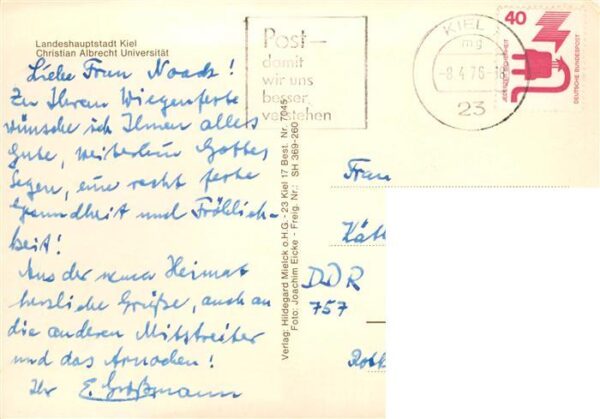 Landeshauptstadt Kiel
Christian Albrecht Universität
Liebe Frau Noack!
Zu Ihrem Wiegenfeste
wünsche ich Ihnen alles
Gute, weiterhin Gottes
Segen, eine recht feste
Gesundheit und Fröhlich-
keit!
Aus der neuen Heimat
herzliche Grüße, auch an
die anderen Mitstreiter
und das
Ihr E. Großmann
Verlag: Hildegard Mielck o.H.G. - 23 Kiel 17 Best. Nr. 7045
Foto: Joachim Eicke - Freig. Nr.: SH 369-260
Post—
damit
wir uns
besser
verstehen
KIEL 1
mg
-8.4.76-18
23
40
DEUTSCHE BUNDESPOST
Frau
Kät
DDR
757